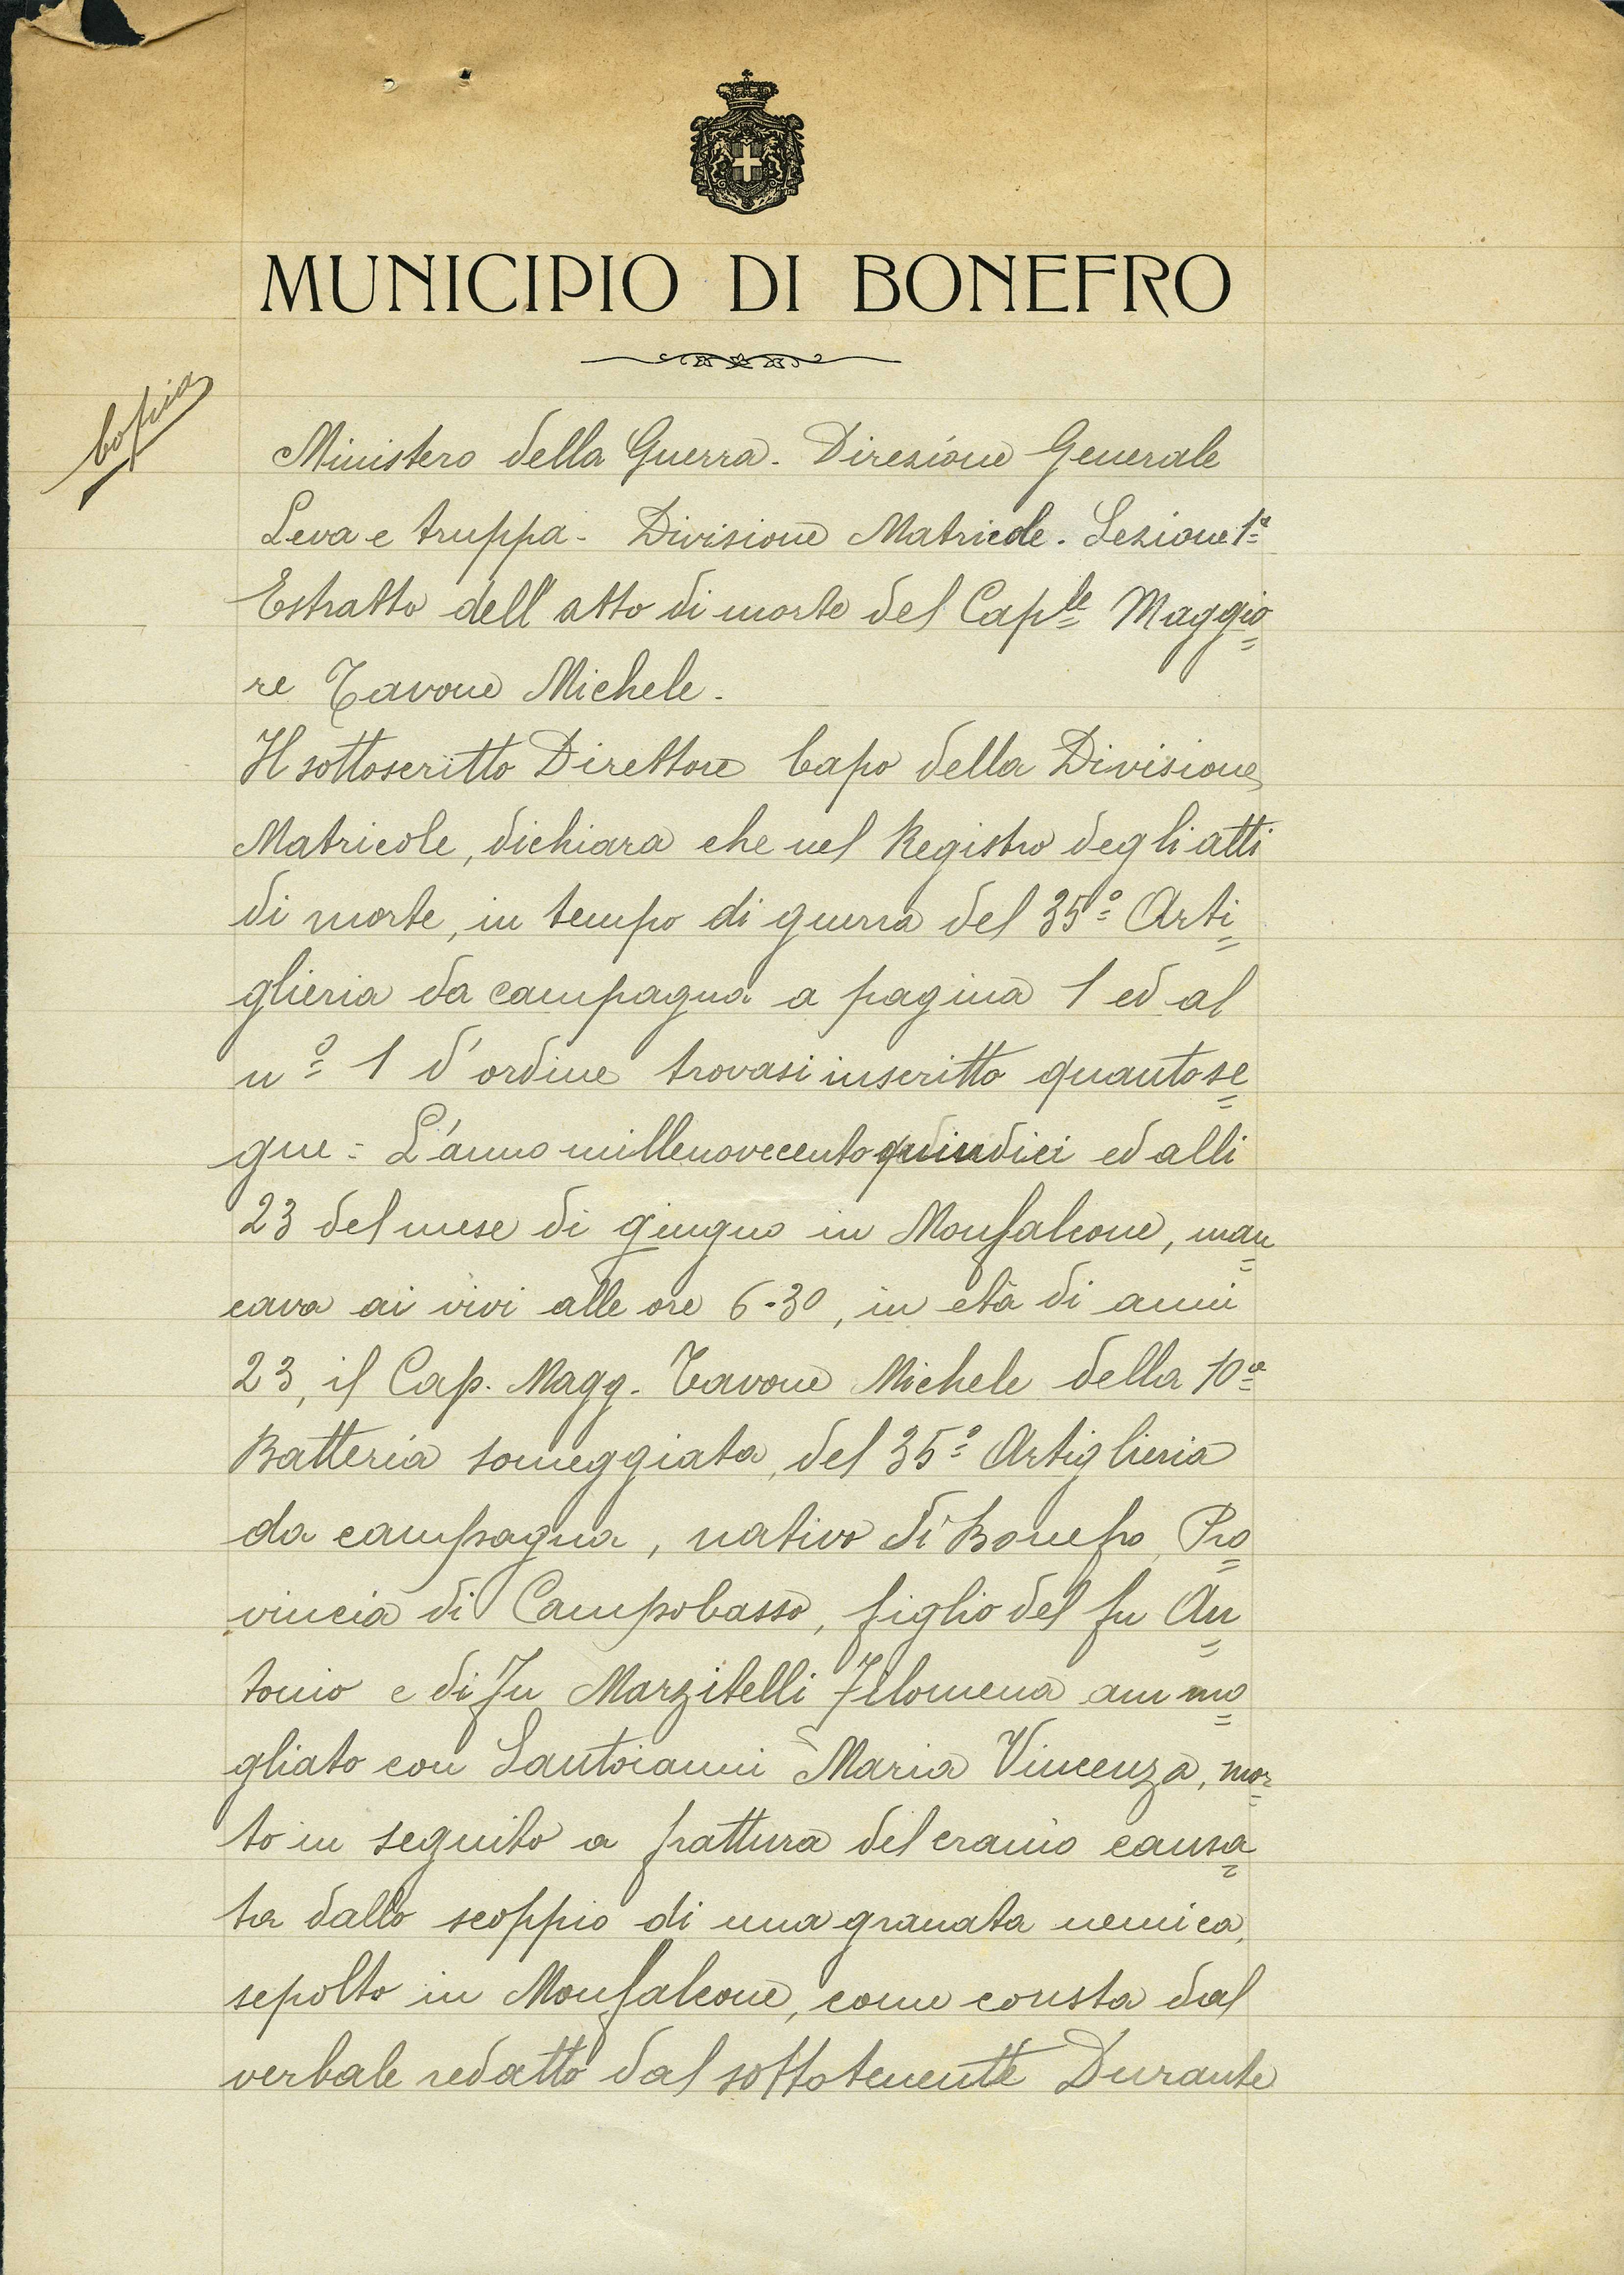 MUNICIPIO DI BONEFRO
Copia
Ministero della Guerra - Direzione Generale
Leva e truppa - Divisione Matricole. Sezione 1ª
Estratto dell'atto di morte del Caple Maggio=
re Tavone Michele -
Il sottoscritto Direttore Capo della Divisione
Matricole, dichiara che nel Registro degli atti
di morte, in tempo di guerra del 35º Arti=
glieria da campagna a pagina 1 ed al
nº 1 d'ordine trovasi inscritto quanto se=
gue = L'anno millenovecentoquindici ed alli
23 del mese di giugno in Monfalcone, man=
cava ai vivi alle ore 6-30, in età di anni
23, il Cap. Magg. Tavone Michele della 10ª
Batteria someggiata, del 35º Artiglieria
da campagna, nativo di Bonefro, Pro=
vincia di Campobasso, figlio del fu An=
tonio e di fu Marzitelli Filomena ammo=
gliato con Santoianni Maria Vincenza, mor=
to in seguito a frattura del cranio causa=
ta dallo scoppio di una granata nemica,
sepolto in Monfalcone, come consta dal
verbale redatto dal sottotenente Durante